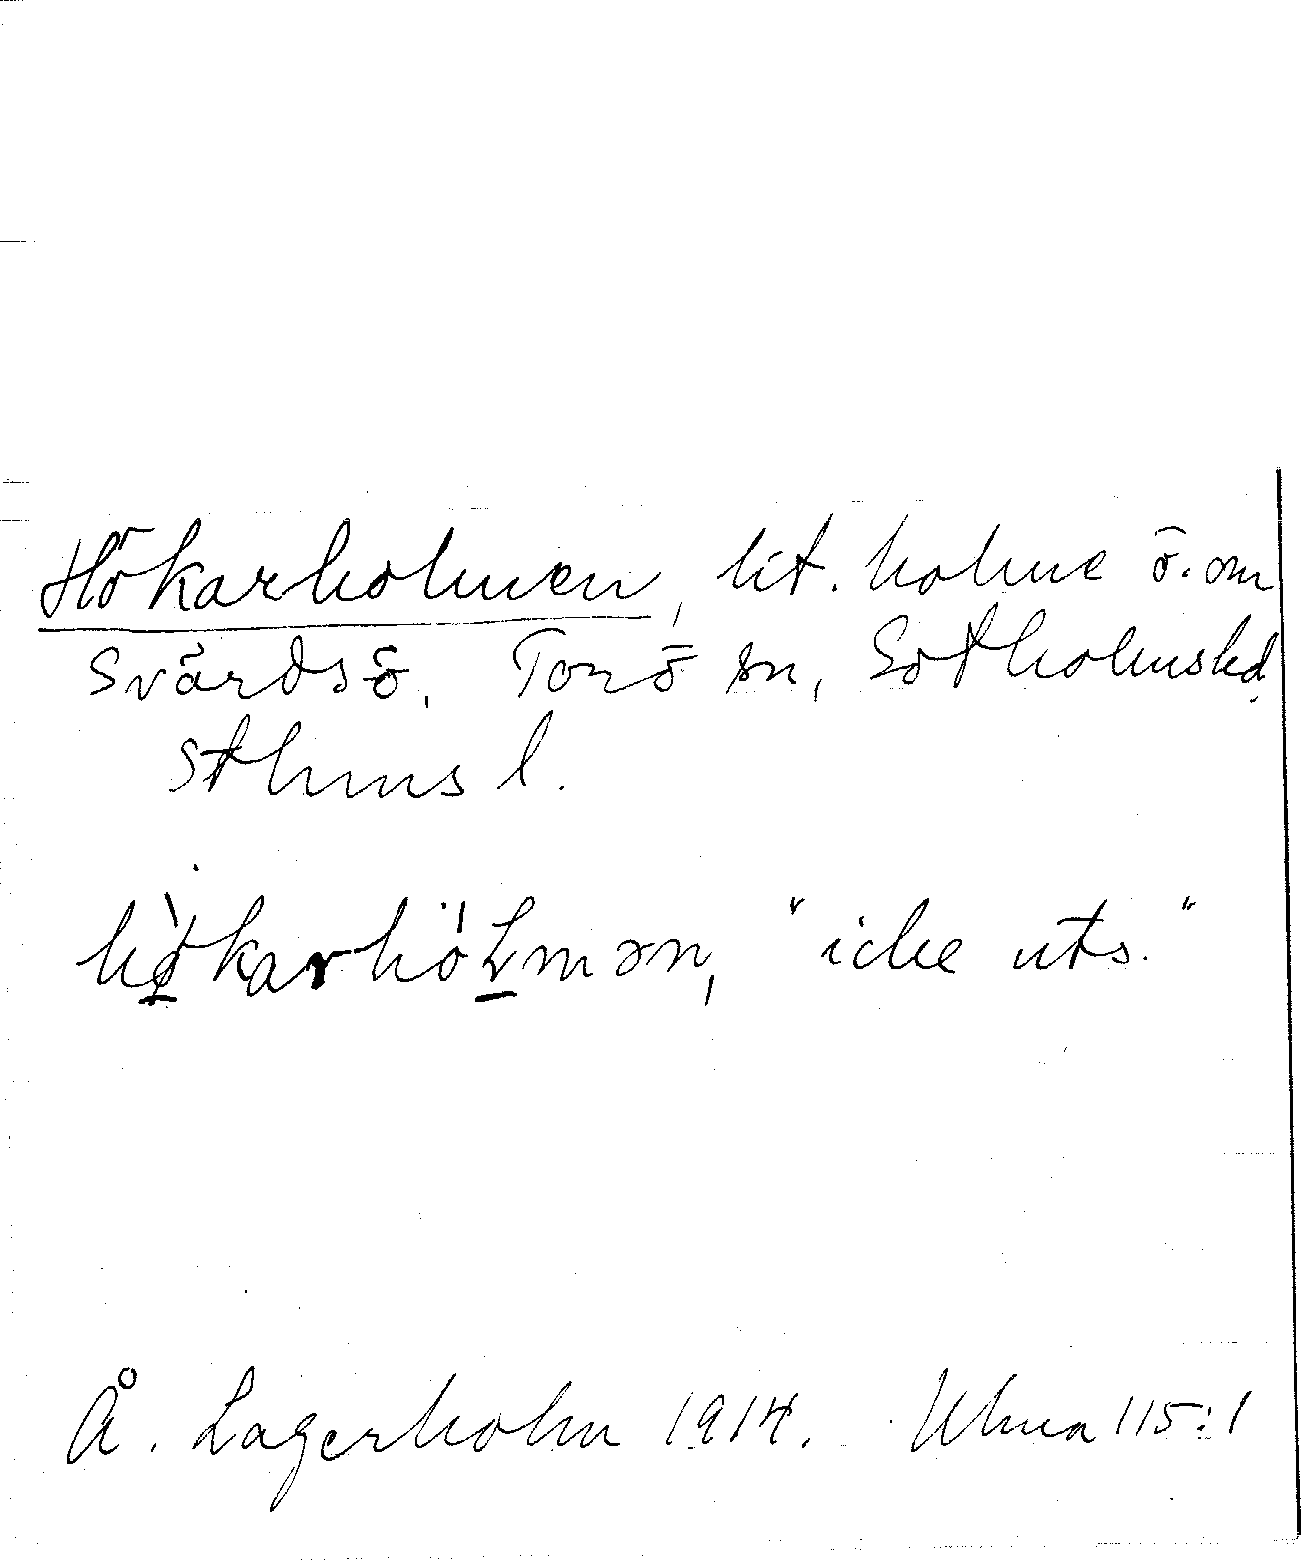 Hökarholmen, lit. holme ö. om
Svärdsö, Torö sn, Sotholmshd
Sthms l.
"icke uts."
Å. Lagerholm 1914. Ulma 115:1